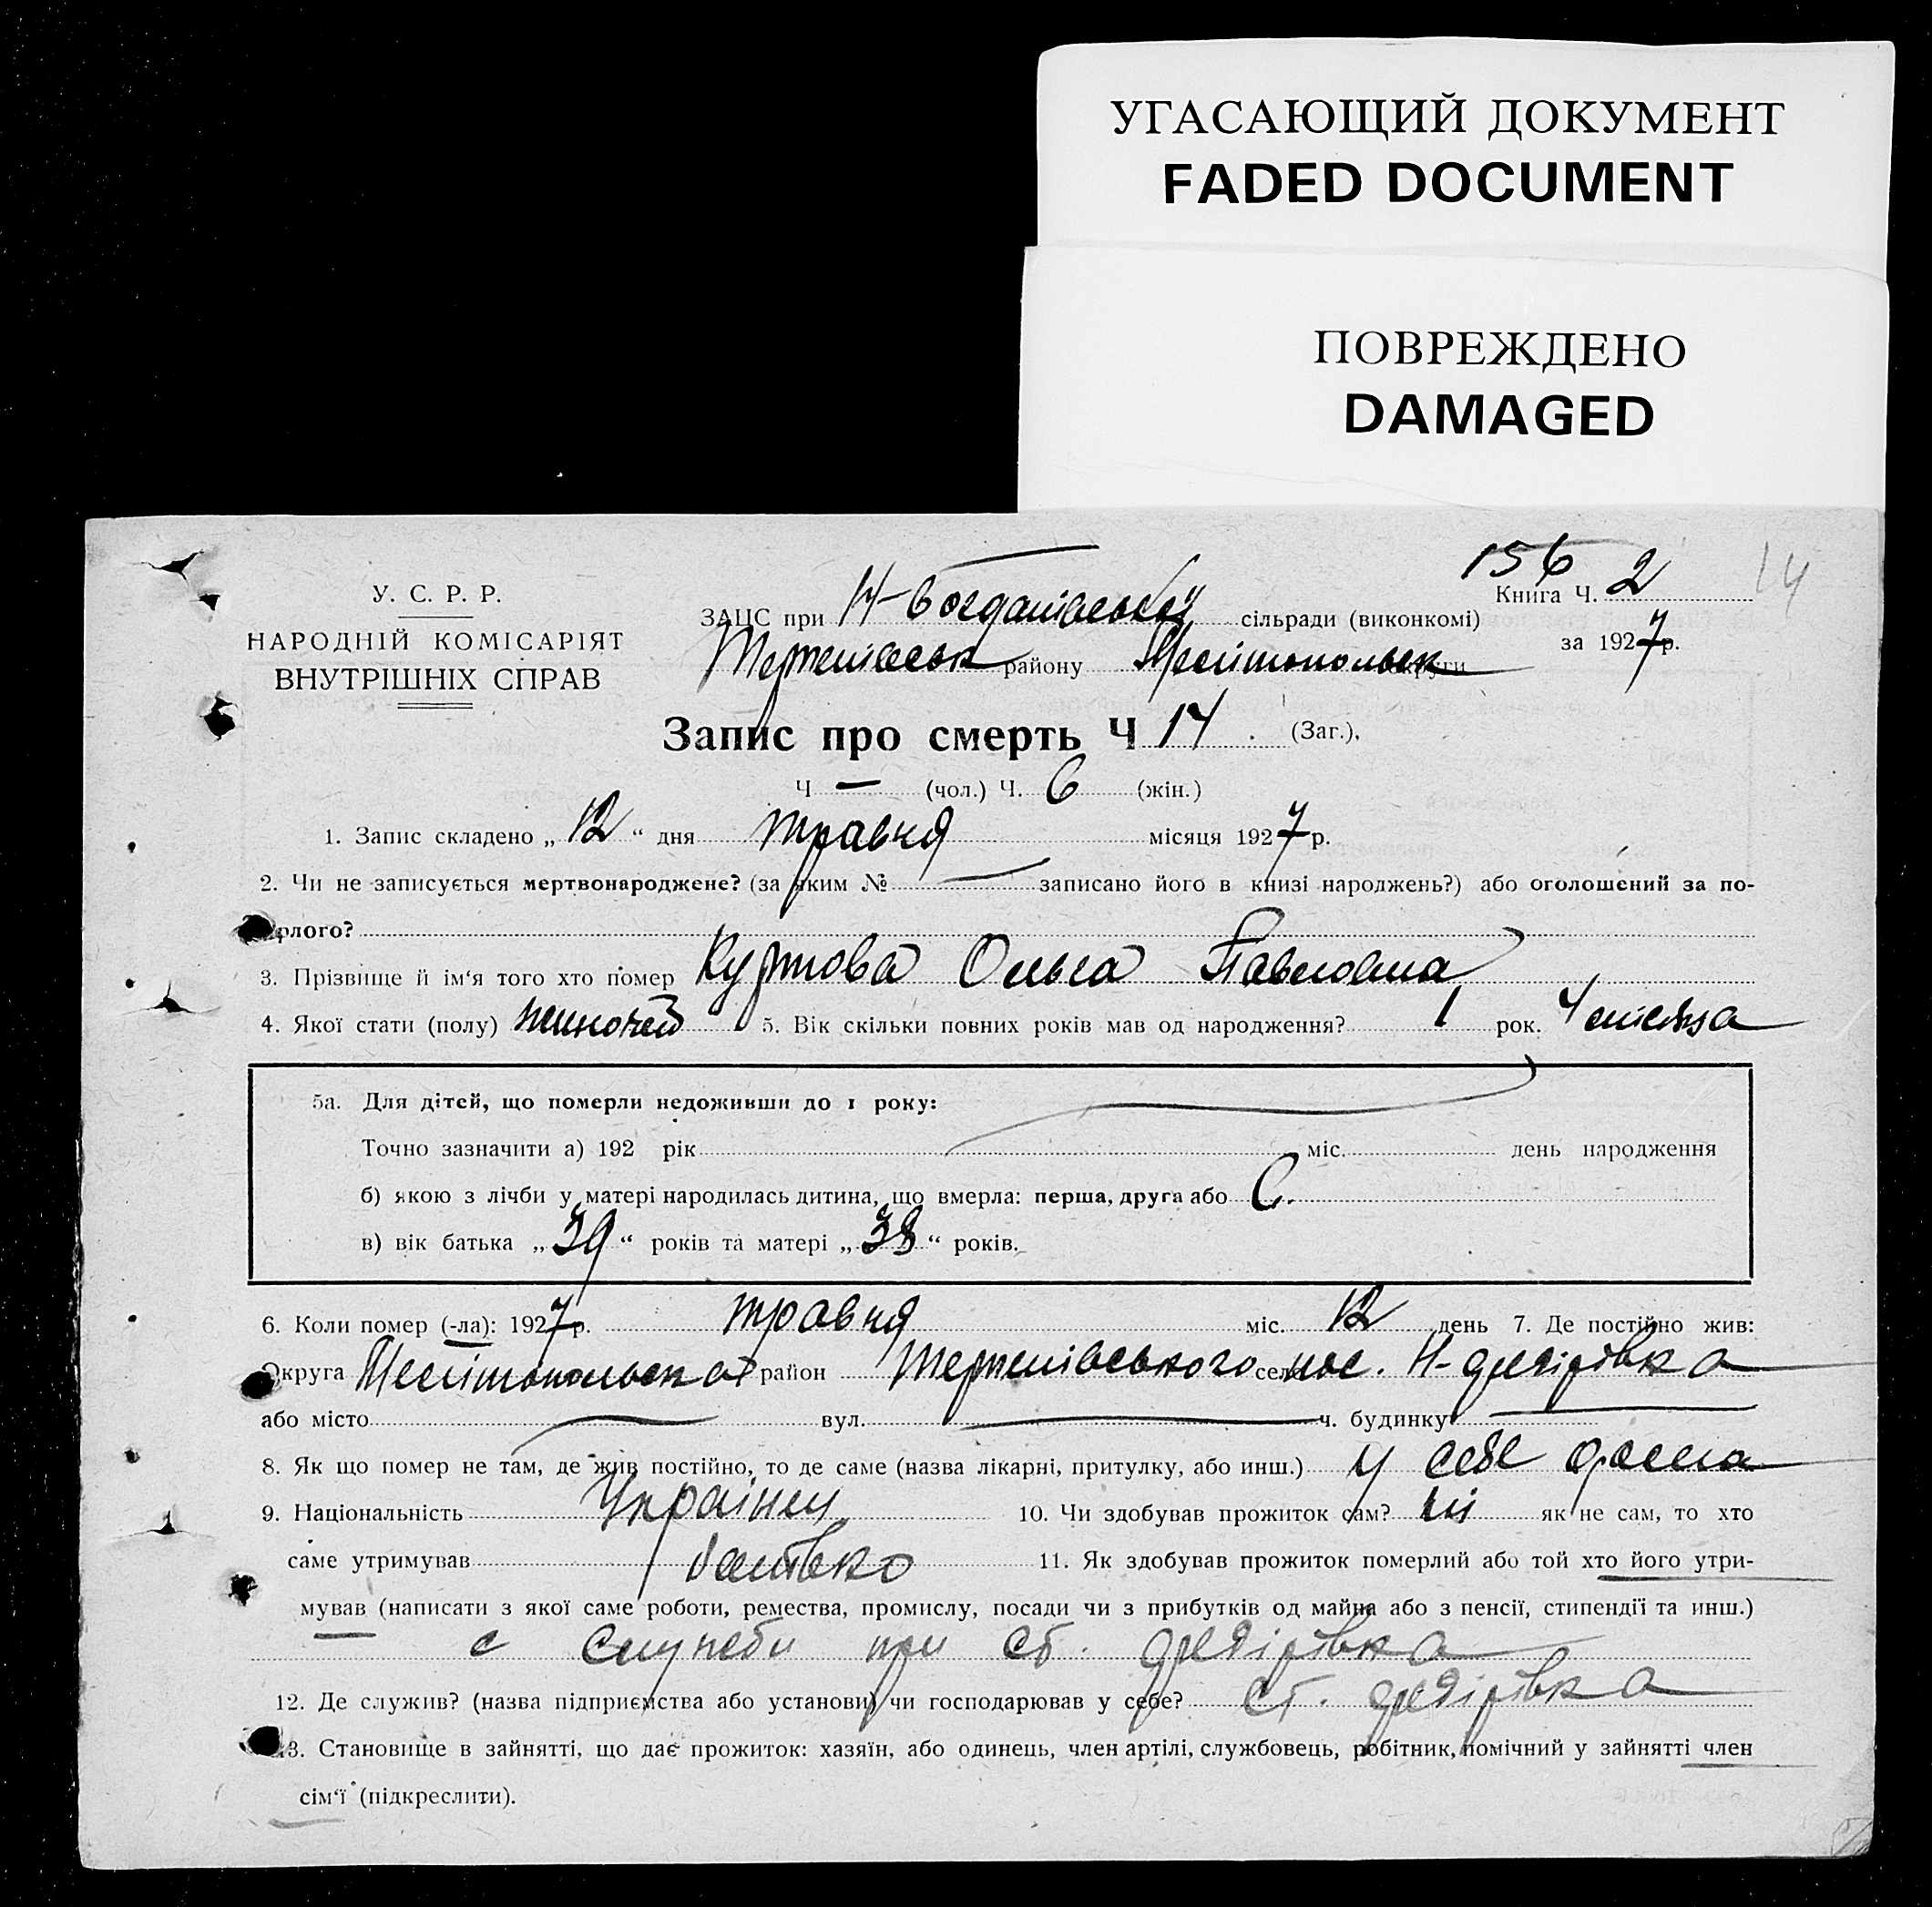 УГАСАЮЩИЙ ДОКУМЕНТ
FADED DOCUMENT
ПОВРЕЖДЕНО
DAMAGED
156
14
У. С. Р. Р.
НАРОДНІЙ КОМІСАРІЯТ
ВНУТРІШНІХ СПРАВ
Книга Ч. 2
за 1927 р.
ЗАЦС при Н-Богданівській сільради (виконкомі)
району Мелітопольск округи
Запис про смерть Ч 14 (Заг.),
Ч — (чол.) Ч. 6 (жін.)
1. Запис складено „ 12 “ дня травня місяця 1927 р.
2. Чи не записується мертвонароджене? (за яким № — записано його в книзі народжень?) або оголошений за по-
рлого?
3. Прізвище й ім'я того хто помер Куртова Ольга Павловна
4. Якої стати (полу) жіночей 5. Вік скільки повних років мав од народження? 1 рок. 4 місяца
5а. Для дітей, що померли недоживши до 1 року:
Точно зазначити а) 192 рік міс. день народження
б) якою з лічби у матері народилась дитина, що вмерла: перша, друга або
в) вік батька „ 39 “ років та матері „ 38 “ років.
6. Коли помер (-ла): 1927 р. травня міс. 12 день 7. Де постійно жив:
Округа Мелітопольска район Терпенівського село пос. Н-Федорівка
або місто — вул. — ч. будинку —
8. Як що помер не там, де жив постійно, то де саме (назва лікарні, притулку, або инш.) у себе дома
9. Національність Украінец 10. Чи здобував прожиток сам? ні як не сам, то хто
саме утримував батько 11. Як здобував прожиток померлий або той хто його утри-
мував (написати з якої саме роботи, ремества, промислу, посади чи з прибутків од майна або з пенсії, стипендії та инш.)
с служби при ст. Федорівка
12. Де служив? (назва підприємства або установи) чи господарював у себе? ст. Федорівка
13. Становище в зайнятті, що дає прожиток: хазяїн, або одинець, член артілі, службовець, робітник, помічний у зайнятті член
сім'ї (підкреслити).